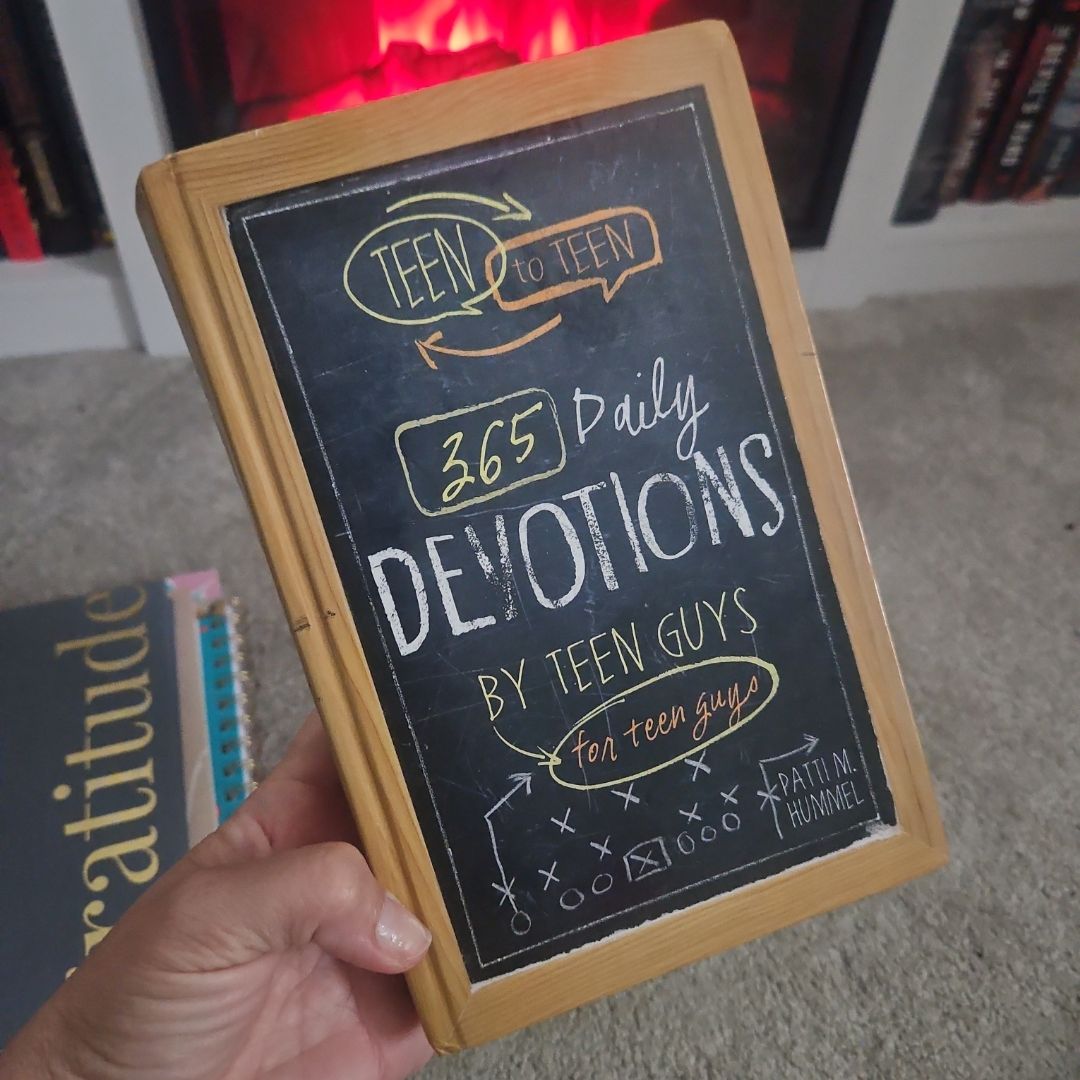 TEEN to TEEN
365 Daily
DEVOTIONS
BY TEEN GUYS
for teen guys
PATTI M.
HUMMEL
ratitude